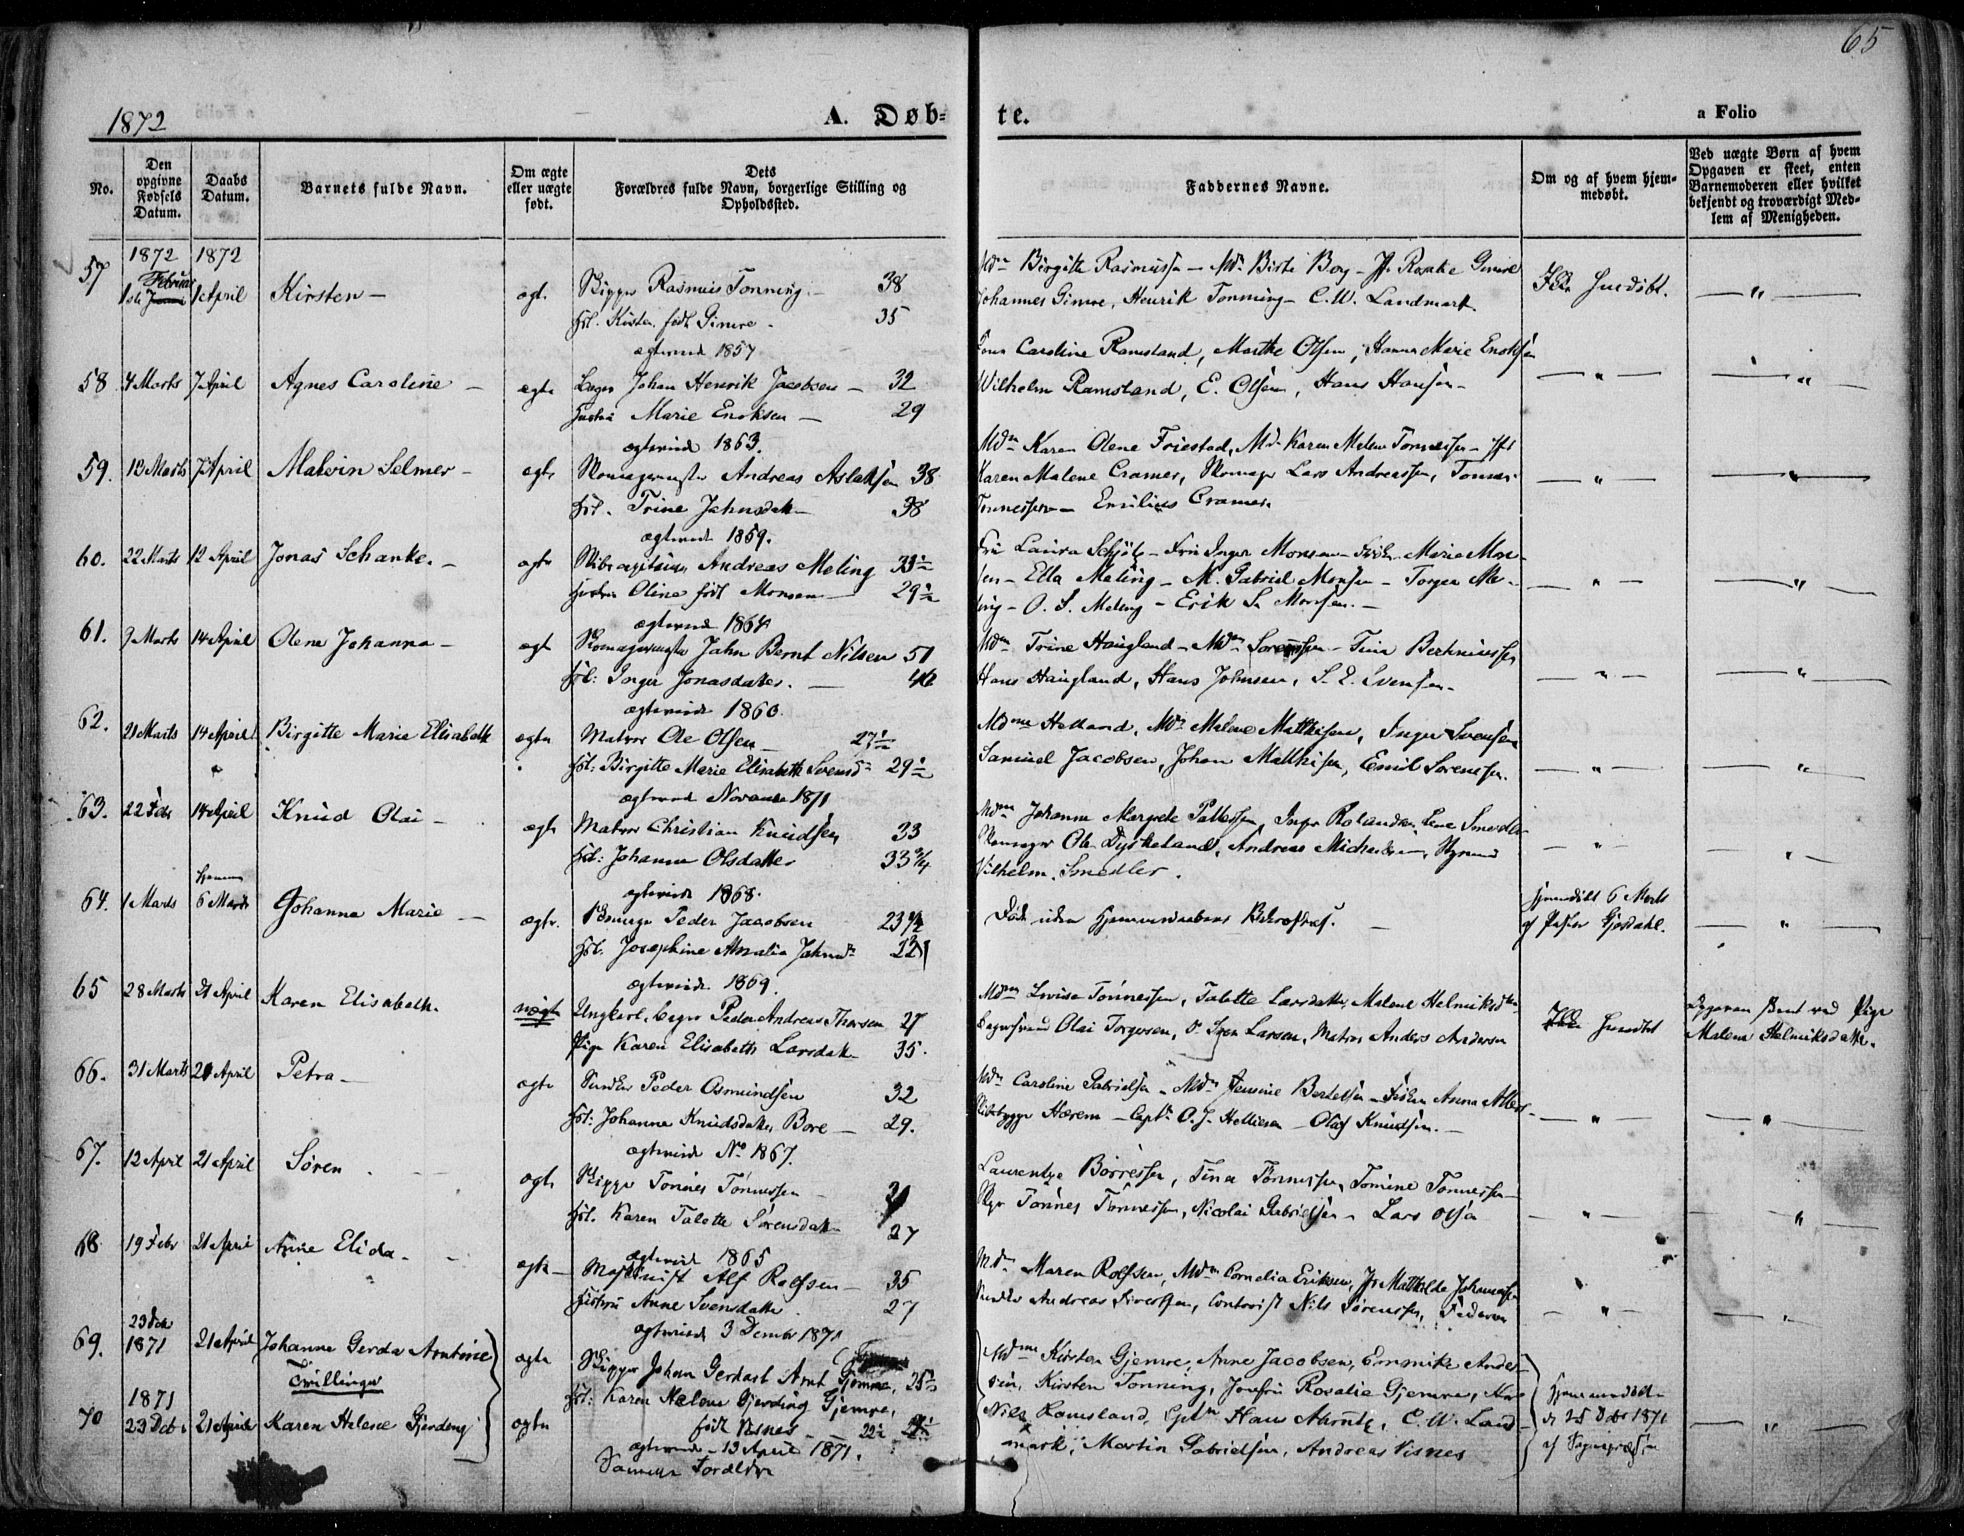 65
1872
A. Døb-
te.
a Folio
No.
Den opgivne Fødsels Datum.
Daabs Datum.
Barnets fulde Navn.
Om ægte eller uægte født.
Dets
Forældres fulde Navn, borgerlige Stilling og
Opholdssted.
Faddernes Navne.
Om og af hvem hjem-
medøbt.
Ved uægte Børn af hvem
Opgaven er skeet, enten
Barnemoderen eller hvilket
bekjendt og troværdigt Med-
lem af Menigheden.
1872 1872
57
Februar
1ste 1 April Kirsten — ægt. Skipper Rasmus Tonning — 38
Hst. Kirsten født Gimre — 35
ægteviede 1857
Birgitte Rasmussen — Berte Boy —
Johannes Gimre, Henrik Tonning — C. W. Landmark
58 4 Marts 7 April Agnes Caroline — ægte Johan Henrik Jacobsen — 32
Hustru Marie Enoksen — 29
ægteviede 1863.
Caroline Ramsland, Marthe Olsen, Hanna Marie Enoksen
Wilhelm Ramsland, E. Olsen, Hans Hansen —
59. 13 Marts 7 April Malvin Selmer — ægte Skomagermester Andreas Aslaksen 38
Hst. Trine Jahnsdatter — 38
ægteviede 1859.
Mdm Karen Olene Friestad, Md. Karen Malene Tönnessen —
Karen Malene Cramer, Skomager Lars Andreassen, Tönnes
Tönnessen — Emilius Cramer.
60. 22 Marts 12 April Jonas Schanke. — ægte Andreas Meling 33½
Hustru Oline født Monsen — 29½
ægteviede 1864
Laura Schjöt — Inger Monsen — Marie Mon-
sen — Ella Meling — M. Gabriel Monsen — Torger Me-
ling — O. S. Meling — Erik S. Monsen. —
61. 9 Marts 14 April Olena Johanna — ægte Skomagermester Jahn Bernt Nilsen 51
Hst: Inger Jonasdatter. — 46
ægteviede 1860.
Mdm Trine Haugland — Mdm Sorensen — Tina Berthniussen
Hans Haugland, Hans Johnsen, S. E. Svensen.
62. 21 Marts 14 April Birgitte Marie Elisabeth ægte Matros Ole Olsen — 27½
Hst: Birgitte Marie Elisabeth Svensd. 29½
ægteviede November 1871
Mdme Helland, Mdm Malene Mathisen, Inger Svensen
Samuel Jacobsen, Johan Mathisen, Emil Sorensen.
63. 22 Febr 14 April Knud Olai — ægte Matros Christian Knudsen 33
Hst: Johanna Olsdatter 33¾
ægteviede 1868.
Mdm Johanna Margrete Pallessen, Inger Rolandsen, Lene Smedler
Skomager Ole Dyskeland, Andreas Michaelsen,
Vilhelm Smedler.
64. 1 Marts 6 Marts Johanna Marie — ægte. Peder Jacobsen 23¾
Hst. Josephine Amalia Jahnsd. 22
ægteviede 1869.
Død uden Hjemmedaabens Bekræftelse. —
Hjemmedøbt 6 Marts
af Pastor Gjesdahl.
65 28 Marts 21 April Karen Elisabeth. uægte Ungkarl, Bager Peder Andreas Thorsen 27
Pige Karen Elisabeth Larsdatter 35.
Mdm Lovise Tönnessen, Talette Larsdatter, Malene Helmiksdtr
Bagersvend Olai Torgersen, Sven Larsen, Matros Anders Andersen
Ikke hjemdøbt
Opgaven skeet ved Pige
Malene Helmiksdatter.
66. 31 Marts 21 April Petra — ægte Peder Osmundsen 32
Hst: Johanna Knudsdatter Bore — 29.
ægteviede No. 1867.
Mdm Caroline Gabrielsen — Mdm Jensine Bertelsen — Anna
Skibsbygger Hærem — Capt. O. J. Helliesen — Olaf Knudsen. —
67. 12 April 21 April Søren ægte Skipper Tönnes Tönnessen — 31
Hst. Karen Talette Sörensdatter 27
ægteviede 1865
Laurentze Börresen, Tina Tönnessen, Tomine Tönnessen —
Tönnes Tönnessen, Nicolai Gabrielsen — Lars Olsen
68. 19 Febr 21 April Anne Elida — ægte — Maskinist Alf Rolfsen — 35
Hustru Anne Svensdatter 27
ægteviede 3 Decembr 1871
Mdm Maren Rolfsen, Mdm Cornelia Eriksen, Mathilde Johannessen
Andreas Sivertsen, Nils Sörensen,
23 Dcb
69. 1871 21 April Johanne Gerda Arntine ægte Skipper Johan Gerhard Arnt Gjemre, 25½
Tvillinger
Hst: Karen Helene Gjerding Gjemre,
født Visnes — 22½
ægteviede — 13 April 1871.
1871
70 23 Decbr 21 April Karen Helene Gjerding ægte
Samme Forældre
Mdme Kirsten Gjemre, Anne Jacobsen, Emmike Ander-
sen, Kirsten Tonning, Jomfru Rosalie Gjemre,
Nils Ramsland, Cptn Hans Ahrntz, C. W. Land-
mark, Martin Gabrielsen, Andreas Visnes
Hjemmedøbt
d. 25 Dcbr 1871
af Sognepræsten